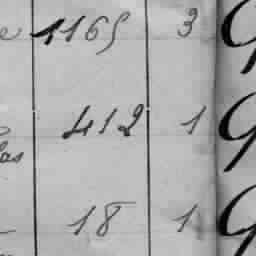 e 1165 3
412 1
las
18 1